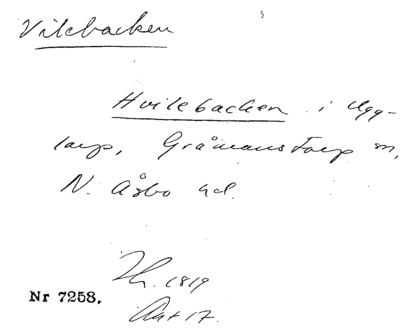 Vilebacken
Hvilebacken i Ugg-
larp, Gråmanstorp sn,
N. Åsbo hd.
Nr 7258.
1819
Akt 17.